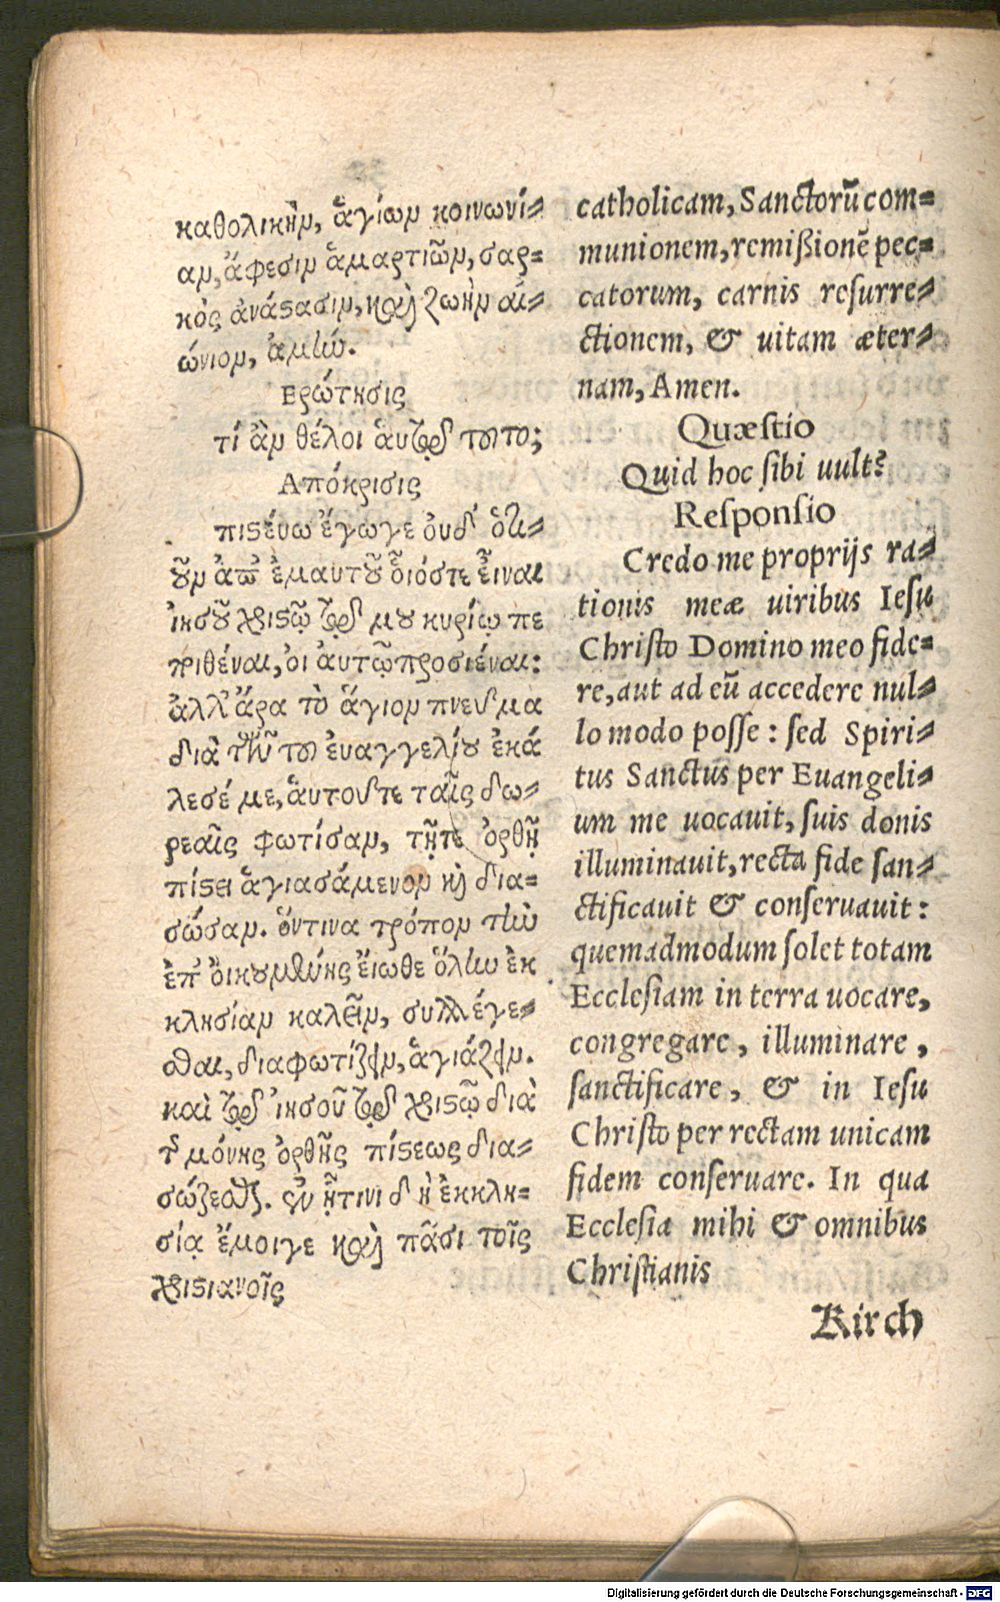 καθολικὴν, ἁγίων κοινωνί⸗
αν, ἄφεσιν ἁμαρτιῶν, σαρ⸗
κὸς ἀνάϛασιν, καὶ ζωὴν αἰ⸗
ώνιον, ἀμήν.
Ερώτησις
τί ἂν θέλοι ἁυτὸ τοῦτο;
Απόκρισις
πιϛέυω ἔγωγε ὀυδ' ὁτι⸗
οῦν ἀπ' ἐμαυτοῦ διόστε εἶναι
ἰησοῦ χριϛῷ τῷ μου κυρίῳ πε
ριθέναι, ὀι ἀυτῷ προσιέναι:
ἀλλ' ἄρα τὸ ἅγιον πνεῦμα
διὰ τὴν τοῦ ἐυαγγελίου ἐκά
λεσέ με, ἁυτοῦτε ταῖς δω⸗
ρεαῖς φωτίσαν, τῇτε ὀρθῇ
πίϛει ἁγιασάμενον καὶ δια⸗
σώσαν. ὅντινα τρόπον τὴν
ἐπ' ὀικουμένης ἔιωθε ὅλην ἐκ
κλησίαν καλεῖν, συλλέγε⸗
σθαι, διαφωτίζειν, ἁγιάζειν.
καὶ τῷ ἰησοῦ τῷ χριϛῷ διὰ
τῆς μόνης ὀρθῆς πίϛεως δια⸗
σώζεσθαι. σὺν ᾗτινι δὴ ἐκκλη⸗
σίᾳ ἔμοιγε καὶ πᾶσι τοῖς
χριϛιανοῖς
catholicam, Sanctorũ com⸗
munionem, remißionẽ pec⸗
catorum, carnis resurre⸗
ctionem, & uitam æter⸗
nam, Amen.
Quæstio
Quid hoc sibi uult?
Responsio
Credo me proprijs ra⸗
tionis meæ uiribus Iesu
Christo Domino meo fide⸗
re, aut ad eũ accedere nul⸗
lo modo posse: sed Spiri⸗
tus Sanctus per Euangeli⸗
um me uocauit, suis donis
illuminauit, recta fide san⸗
ctificauit & conseruauit:
quemadmodum solet totam
Ecclesiam in terra uocare,
congregare, illuminare,
sanctificare, & in Iesu
Christo per rectam unicam
fidem conseruare. In qua
Ecclesia mihi & omnibus
Christianis
Kirch
Digitalisierung gefördert durch die Deutsche Forschungsgemeinschaft - DFG